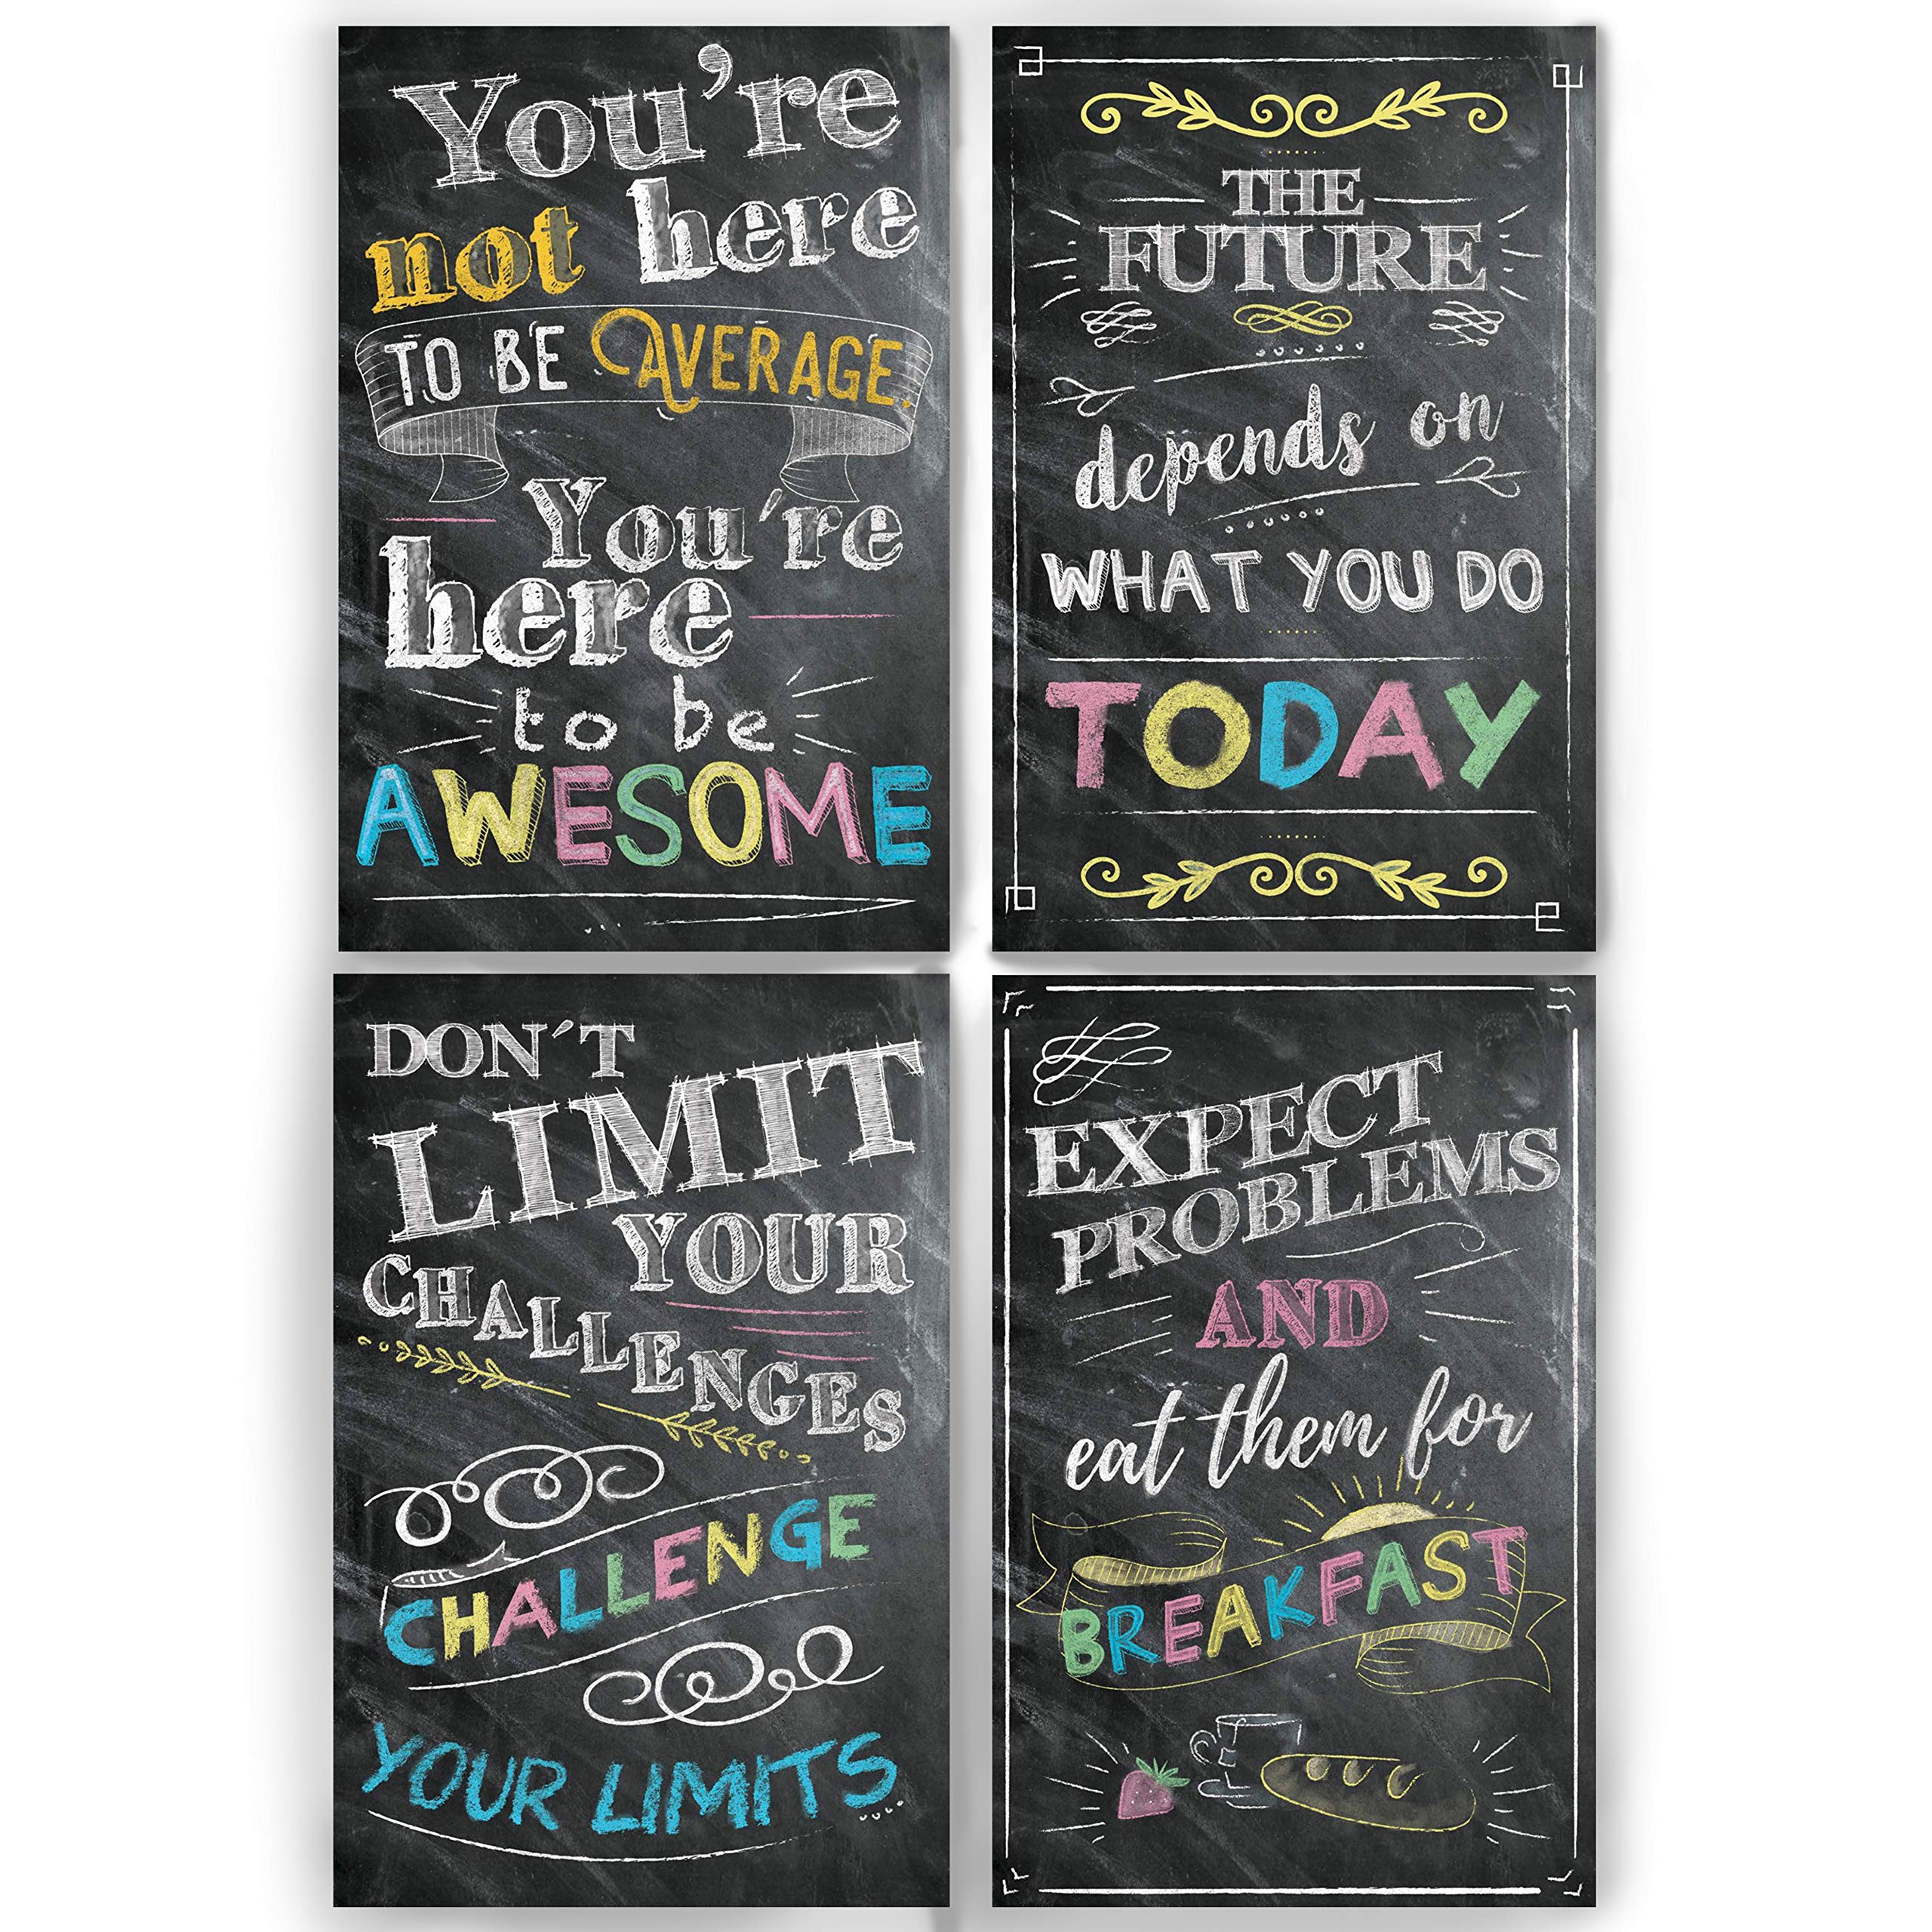 You're
not here
TO BE AVERAGE.
You're
here
to be
AWESOME
THE
FUTURE
depends on
WHAT YOU DO
TODAY
DON´T
LIMIT
YOUR
CHALLENGES
CHALLENGE
YOUR LIMITS
EXPECT
PROBLEMS
AND
eat them for
BREAKFAST